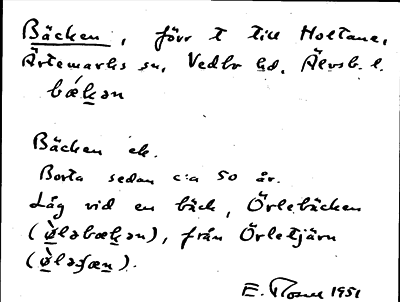 Bäcken, förr t till Holtane,
Ärtemarks sn, Vedbo hd, Älvsb. l.
bǽkən
Bäcken ek.
Borta sedan c:a 50 år.
Låg vid en bäck, Örlebäcken
(ø̀ləbækən), från Örletjärn
(
E. 1951